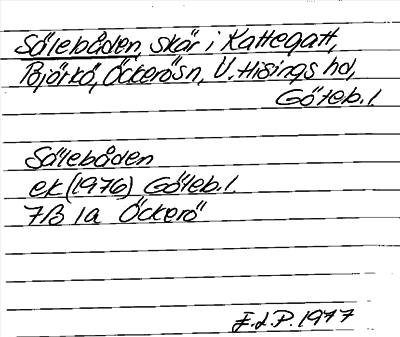 Sölebåden, skär i Kattegatt,
Björkö, Öckerösn, V. Hisings hd,
Göteb. l.
Sölebåden
ek (1976) Göteb. l.
7B 1a Öckerö
E.d.P. 1977